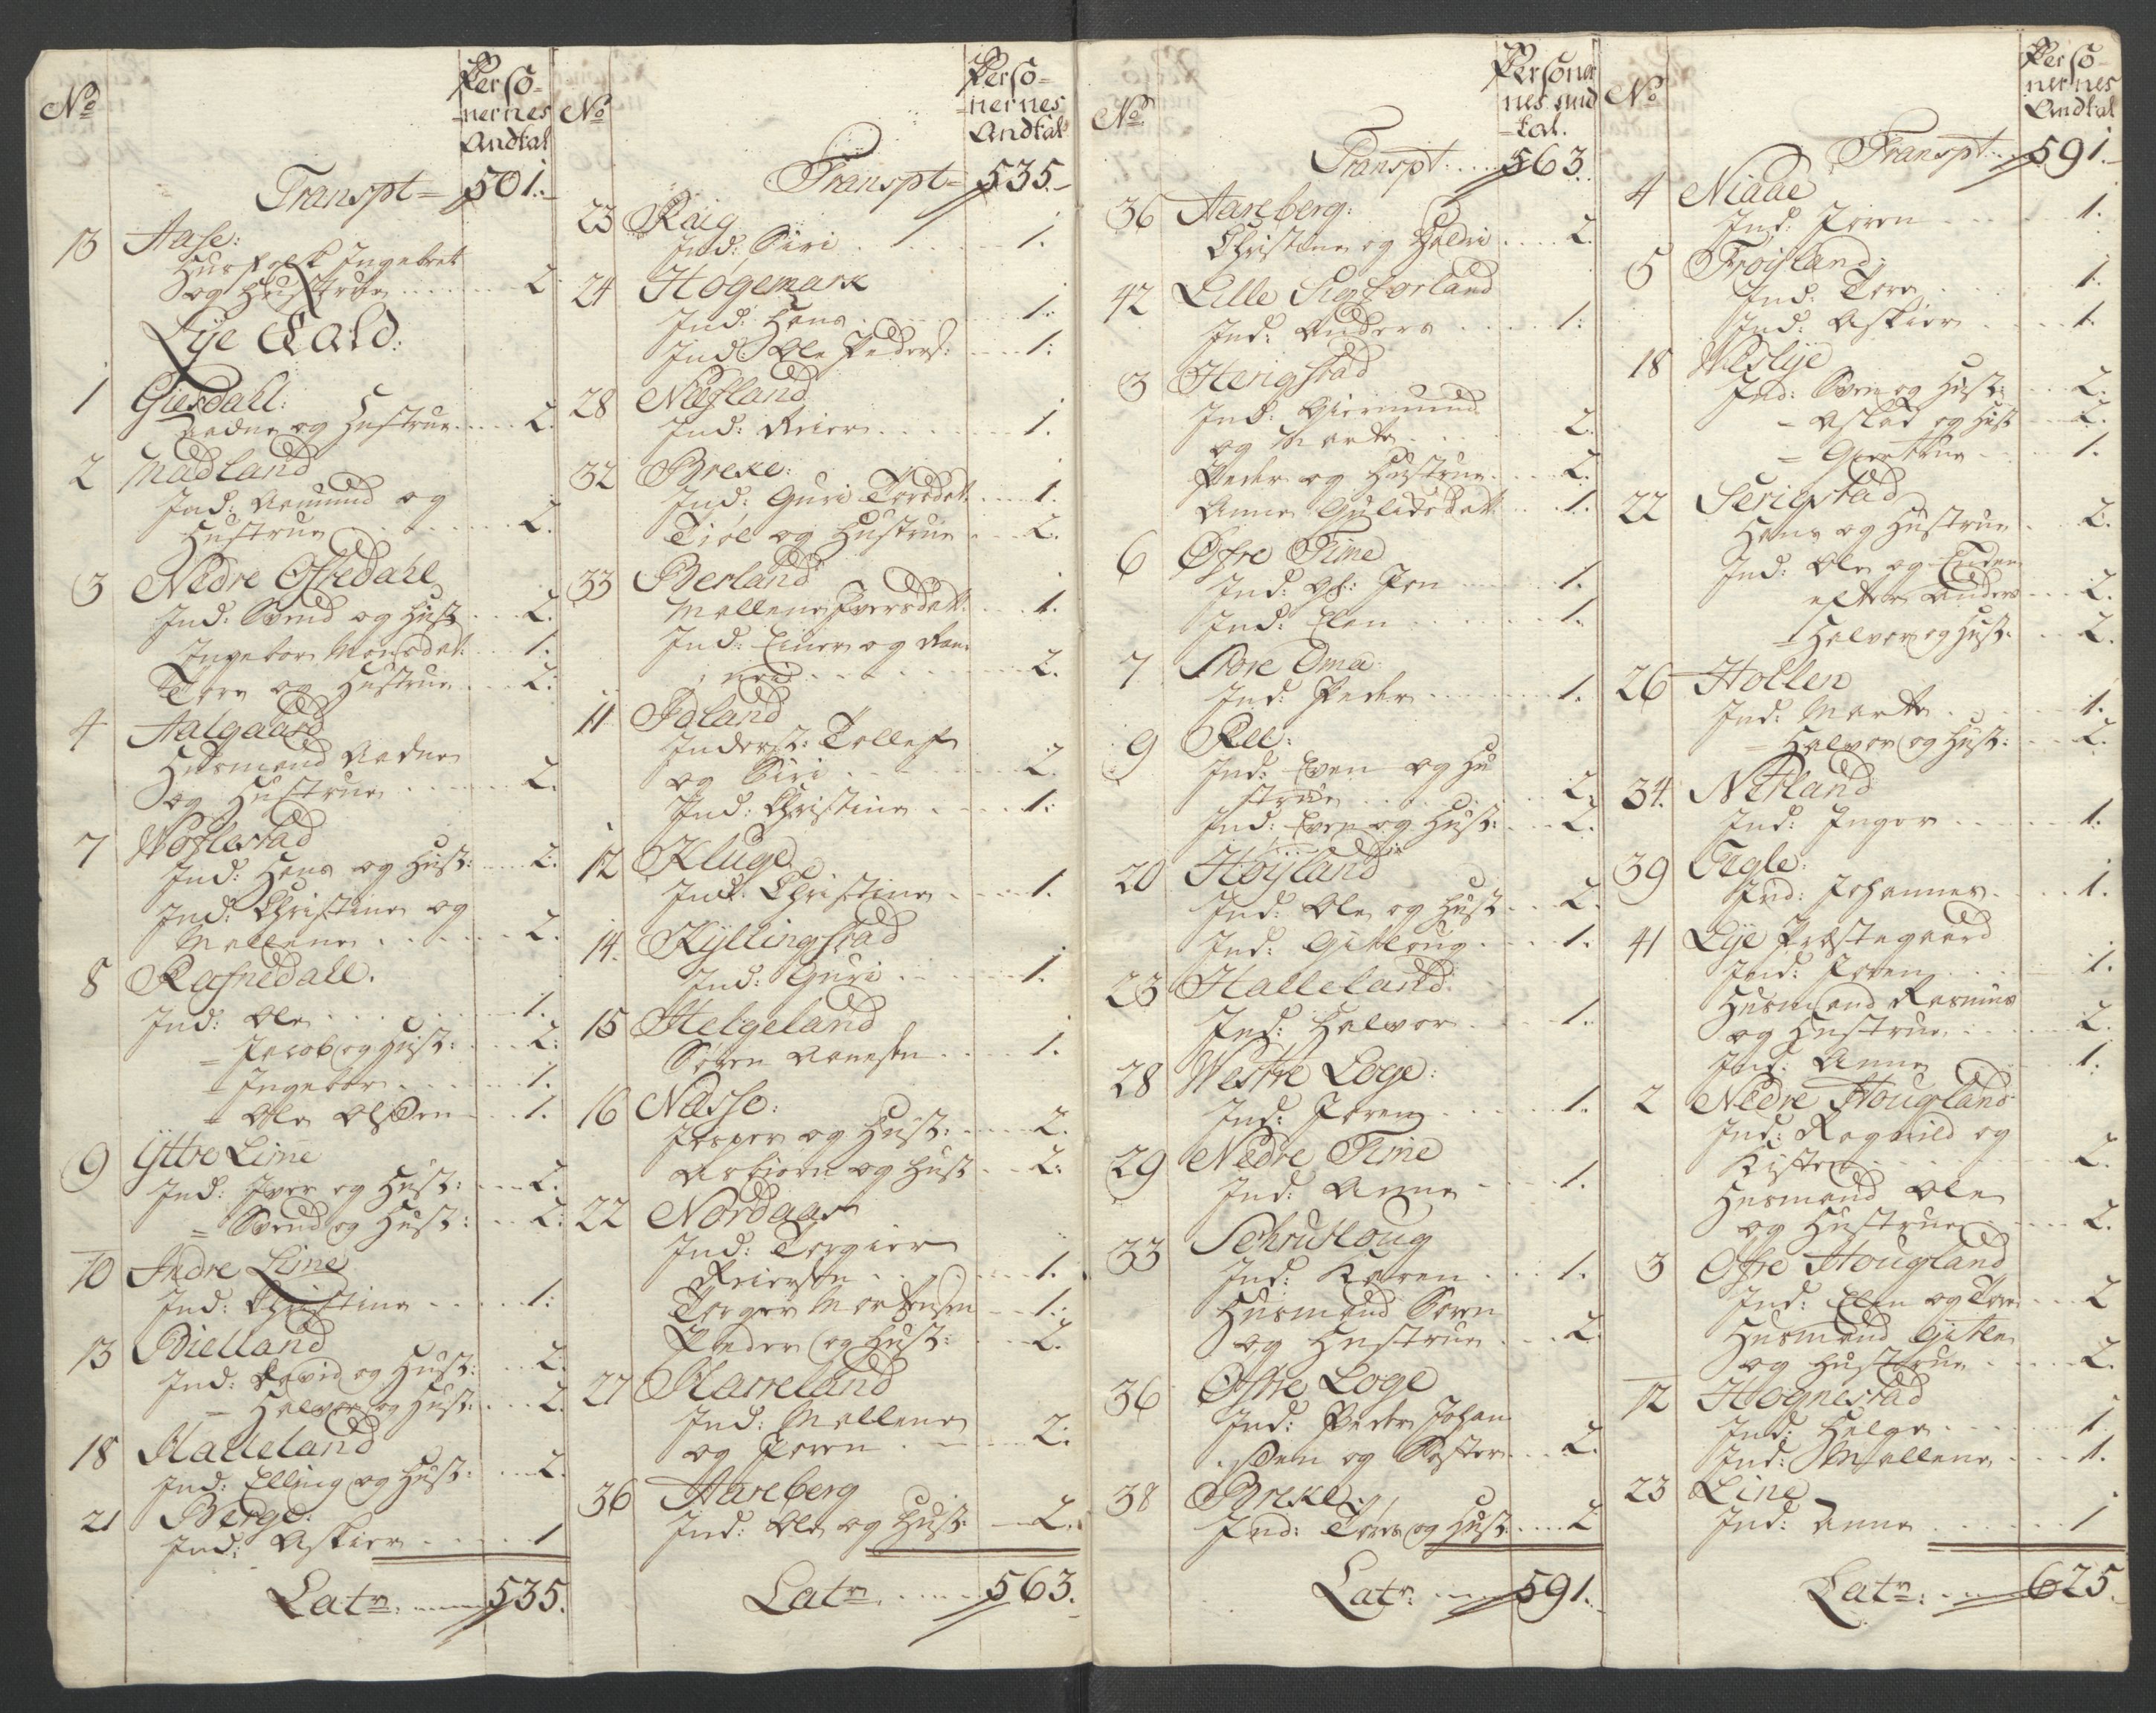 No
Perso-
nernes
Andtal
Transpt = 501.
13 Aase:
Husfolk Ingebret
og Hustrue 2
Lye Tald:
1 Giesdahl:
Aadne og Hustrue 2.
2 Madland
Ind: Aamund og
Hustrue 2.
3 Nedre Ofstedahl
Ind: Svend og Hust 2.
Ingebor Monsdat: 1.
Tore og Hustrue 2.
4 Aalgaard
Husmand Aadne
og Hustrue 2.
7
Ind: Hans og Hust: 2.
Ind: Christine og
Mallene 2.
8 Rafnedall.
Ind: Ole 1.
= Jacob og Hust: 2.
= Ingebor 1.
= Ole Olsen 1.
9 Yttre Lime
Ind: Iver og Hust: 2.
= Svend og Hust: 2.
10 Indre Lime
Ind: Christine 1.
13 Bielland
Ind: David og Hust: 2.
= Halvor og Hust: 2.
18 Malleland
Ind: Elling og Hust: 2.
21 Berge:
Ind: Askier 1
Latr. 535.
No
Perso=
nernes
Andtal
Transpt = 535.
23 Raig
Ind: Siri 1.
24 Høgemark
Ind: Hans 1.
Ind: Ole Peders: 1:
28 Nesland
Ind: Reier 1.
32 Breke:
Ind: Guri Torsdat. 1.
Tiøl og Hustrue 2.
33 Berland
Mallene Iversdatt. 1.
Ind: Einer og Ran-
nei 2.
11 Idland
Inderst: Tollef
og Siri 2.
Ind: Christine 1.
12 Kluge
Ind: Christine 1.
14. Kyllingstad
Ind: Guri 1.
15 Helgeland
Søren Aanesen 1.
16 Næsse:
Jesper og Hust: 2.
Asbiørn og Hust 2.
22 Nordaas
Ind: Torgier
Reiersen 1.
Torger Mortensen 1.
Peder og Hust: 2.
27 Mareland
Ind: Mallene
og Joren 2.
36 Aareberg
Ind: Ole og Hust: 2.
Latr. 563.
No
Personer
nes And
tal.
Transpt. 563.
36 Aareberg:
Christine og Haldri 2.
42 Lille Sigtorland
Ind: Anders 1.
3 Herigstad
Ind: Giermund
og Marte 2.
Peder og Hustrue 2.
Anne Gulidsdat 1.
6 Øfre Time
Ind: Jon 1.
Ind: Elen 1.
7 Store Oma:
Ind: Peder 1.
9 Ree:
Ind: Even og Hu
strue 2.
Ind: Even og Hust: 2.
20 Høyland
Ind: Ole og Hust 2.
Ind: Gitloug 1.
23 Halleland.
Ind: Halvor 1.
28 Westre Loge:
Ind: Joren 1.
29 Nedre Time
Ind: Anne 1.
33 Schrudloug
Ind: Karen 1.
Husmand Soren
og Hustrue 2.
36 Øfre Loge
Ind: Peder Johan
sen og Søster 2.
38 Breke:
Ind: Tørs og Hust: 2
Latr: 591.
No
Perso-
nernes
Andtal
Transpt. 591.
4 Niaae
Ind: Joren 1.
5 Frøyland:
Ind: Tore 1.
Ind: Askier 1.
18 Wedlye
Ind: Sven og Hust: 2.
= Aslad og Hust 2.
= 1.
22 Serigstad
Hans og Hustrue 2.
Ind: Ole og Enken
efter Anders 2.
= Halvor og Hust: 2.
26 Hollen
Ind: Marte 1.
= Halvor og Hust: 2.
34. Netland
Ind: Inger 1.
39 Tegle:
Ind: Johannes 1.
41 Lye Præstegaard
Ind: Joren 1.
Husmand Rasmus
og Hustrue 2.
Ind: Anne 1.
2 Nedre Hougland
Ind: Ragnild og
Kisten 2.
Husmand Ole
og Hustrue 2.
3 Øfre Hougland
Ind: Elen og Tore 2
Husmand Gitle
og Hustrue 2.
12 Hognestad
Ind: Helge 1.
Ind: Mallene 1.
23 Line
Ind: Anne 1
Latr: 625.